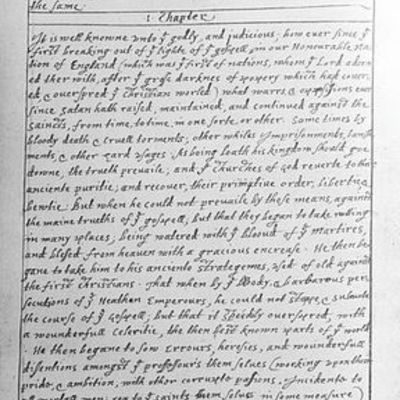 the same.
1. Chapter
It is well knowne unto yᵉ godly, and judicious; how ever since yᵉ
first breaking out of yᵉ lighte of yᵉ gospell, in our Honourable Na-
tion of England (which was yᵉ first of nations, whom yᵉ Lord adorn-
ed ther with, after yᵉ grosse darknes of popery which had cover-
ed, & overspred yᵉ Christian worled) what warrs, & oppissions ever
since Satan hath raised, maintained, and continued against the
Saincts, from time, to time, in one sorte, or other. Some times by
bloody death & cruell torments; other whiles ymprisonments, banish-
ments, & other hard usages. As being loath his kingdom should goe
downe, the trueth prevaile; and yᵉ Churches of God reverte to their
anciente puritie; and recover, their primative order, libertie, &
bewtie. But when he could not prevaile by these means, against
the maine trueths of yᵉ gospell, but that they began to take rooting
in many places; being watered with yᵉ bloud of yᵉ martires,
and blesed from heaven with a gracious encrease. He then be-
gane to take him to his anciente strategemes, used of old against
the first Christians. That when by yᵉ bloody, & barbarous per-
secutions of yᵉ Heathen Emperours, he could not stoppe, & subverte
the course of yᵉ gospell; but that it speedily overspred, with
a wounderfull celeritie, the then best known parts of yᵉ world.
He then begane to sow errours, heresies, and wounderfull
disentions amongst yᵉ professours them selves (working upon their
pride, & ambition, with other corrupte passions, Incidente to
all mortall men; yea to yᵉ saints them selves in some measure)